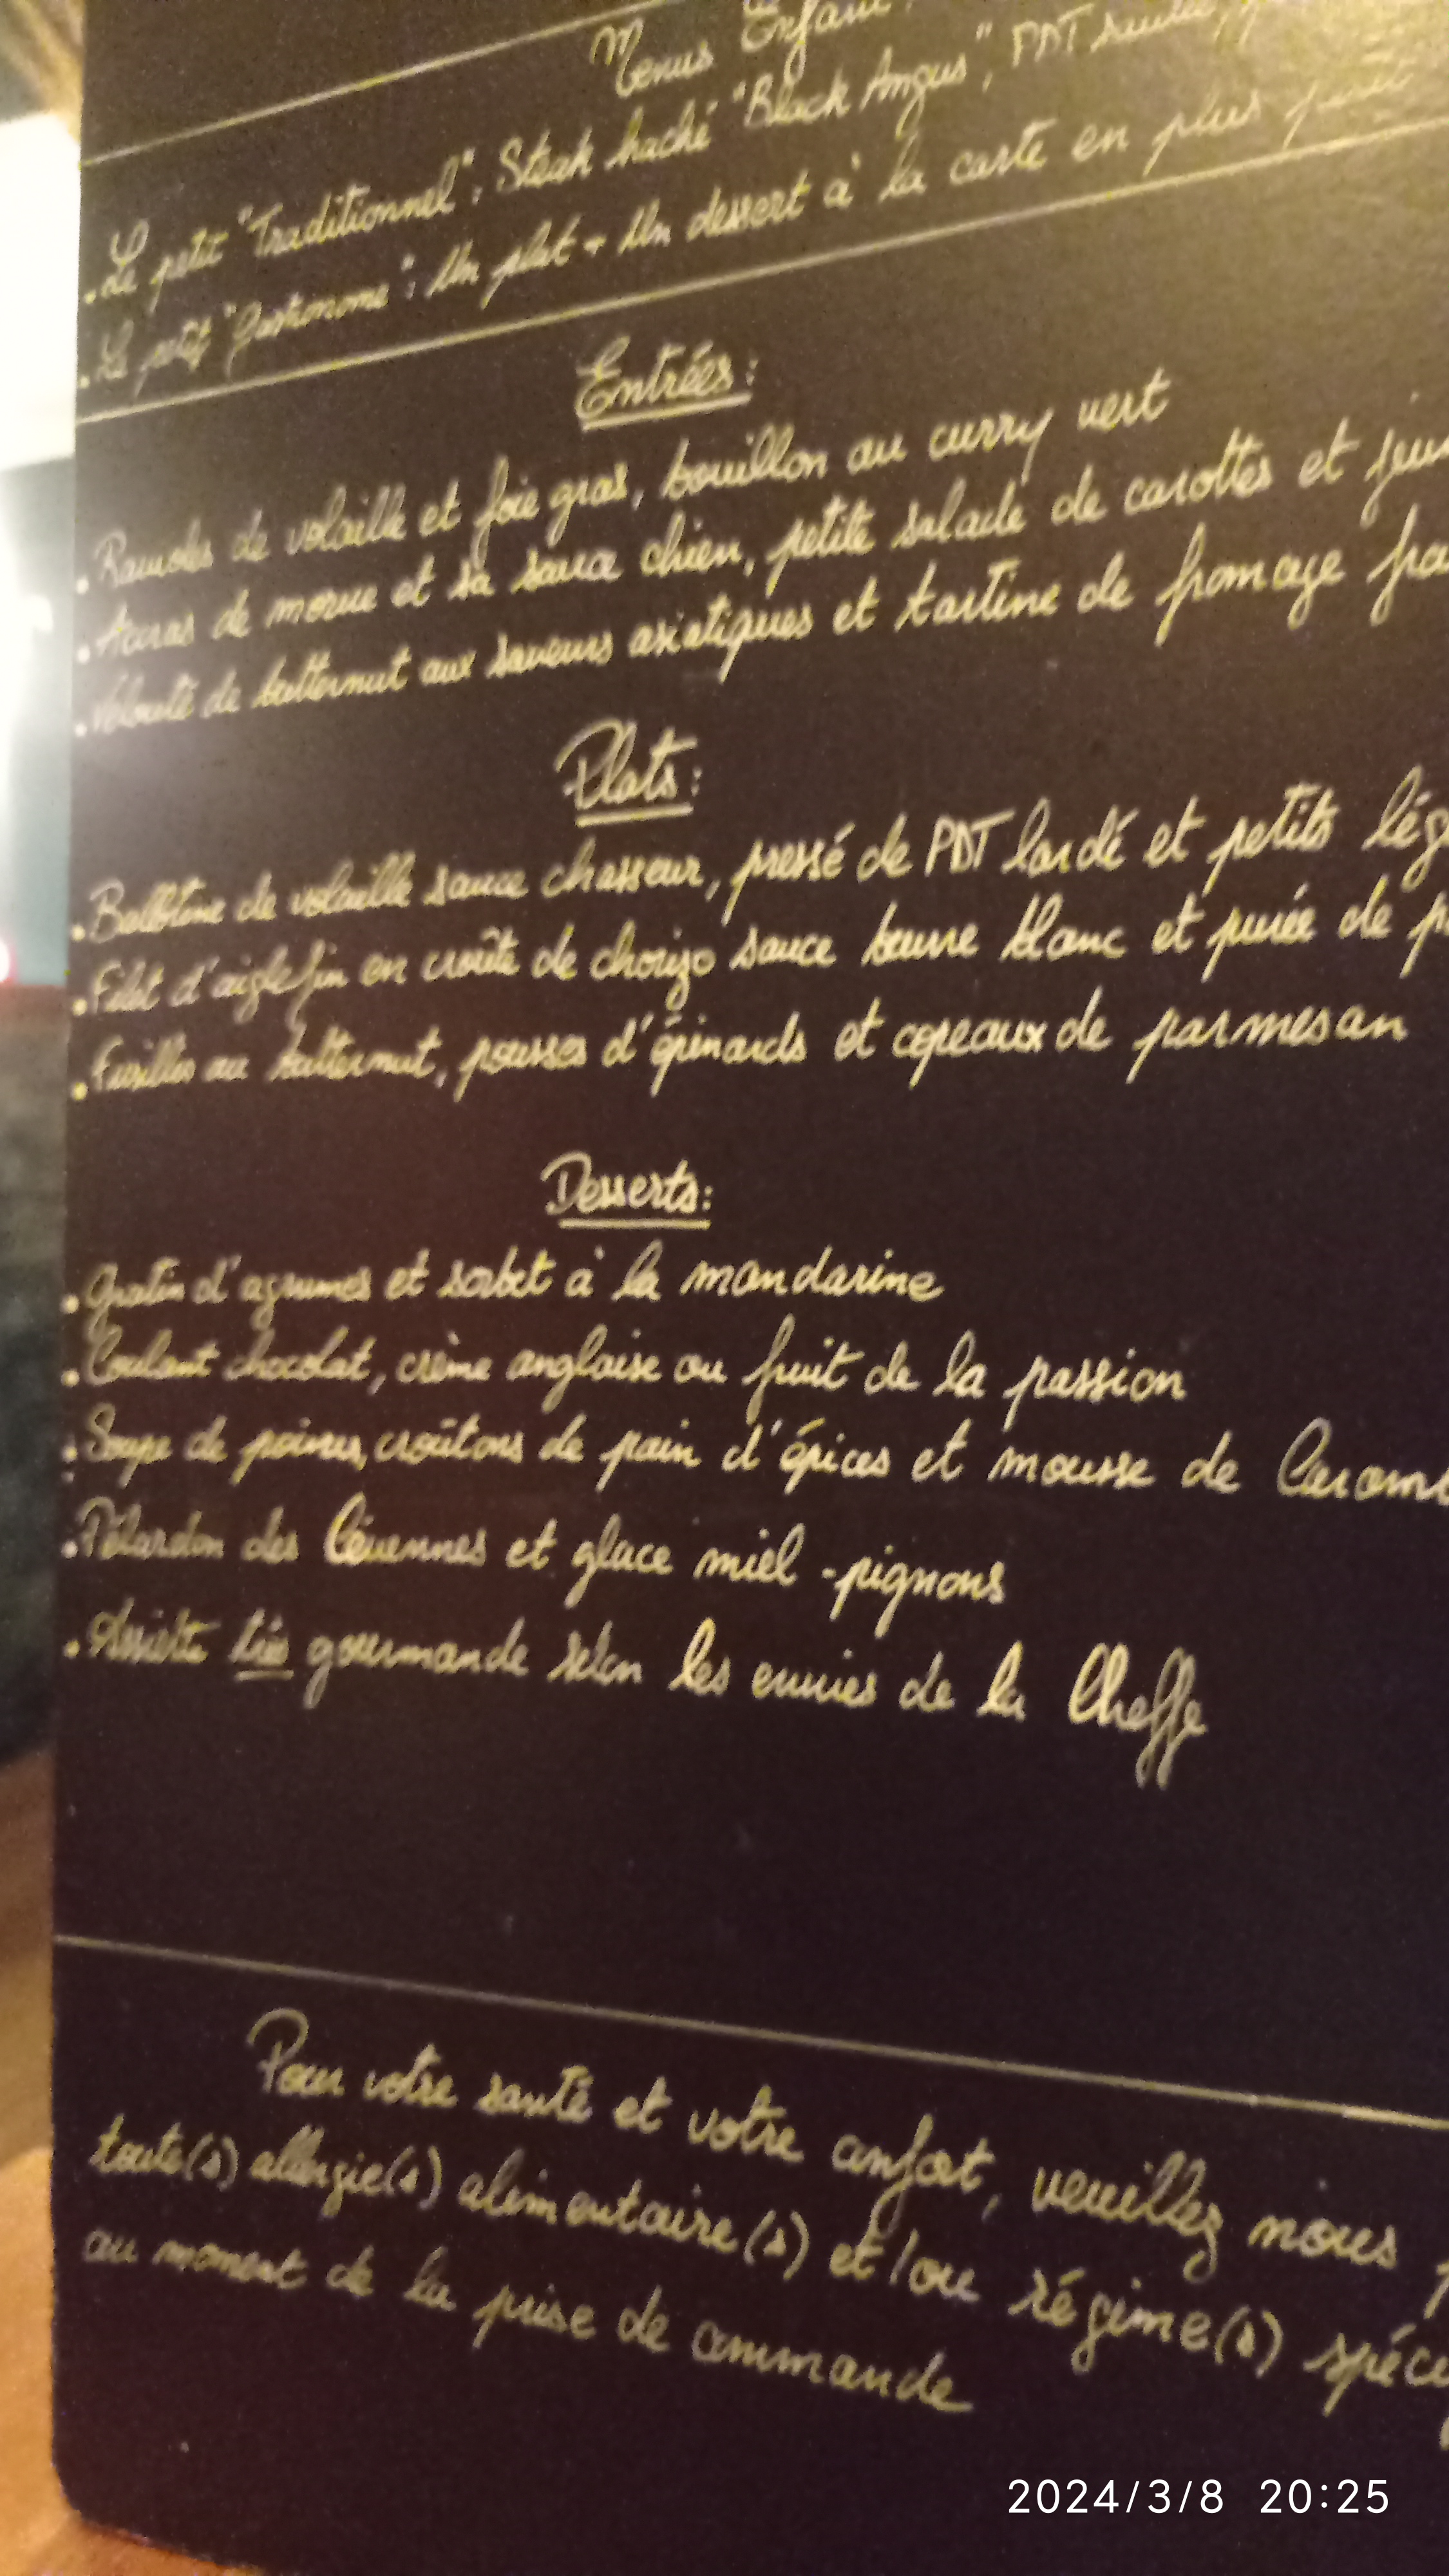 Menus Enfant
. Le petit "Traditionnel": Steak haché "Black Angus", PDT
. Le petit "Gastronome": Un plat + Un dessert à la carte en plus petit
Entrées:
. Ravioles de volaille et foie gras, bouillon au curry vert
. Accras de morue et sa sauce chien, petite salade de carottes et
. Velouté de butternut aux saveurs asiatiques et tartine de fromage
Plats:
. Ballotine de volaille sauce chasseur, pressé de PDT lardé et petits
. Filet d'aiglefin en croûte de chorizo sauce beurre blanc et purée de
. Fusilles au butternut, pousses d'épinards et copeaux de parmesan
Desserts:
. Gratin d'agrumes et sorbet à la mandarine
. Coulant chocolat, crème anglaise au fruit de la passion
. Soupe de poires, croûtons de pain d'épices et mousse de
. Pélardon des Cévennes et glace miel-pignons
. Assiette très gourmande selon les envies de la Cheffe
Pour votre santé et votre confort, veuillez nous
toute(s) allergie(s) alimentaire(s) et/ou régime(s)
au moment de la prise de commande
2024/3/8 20:25